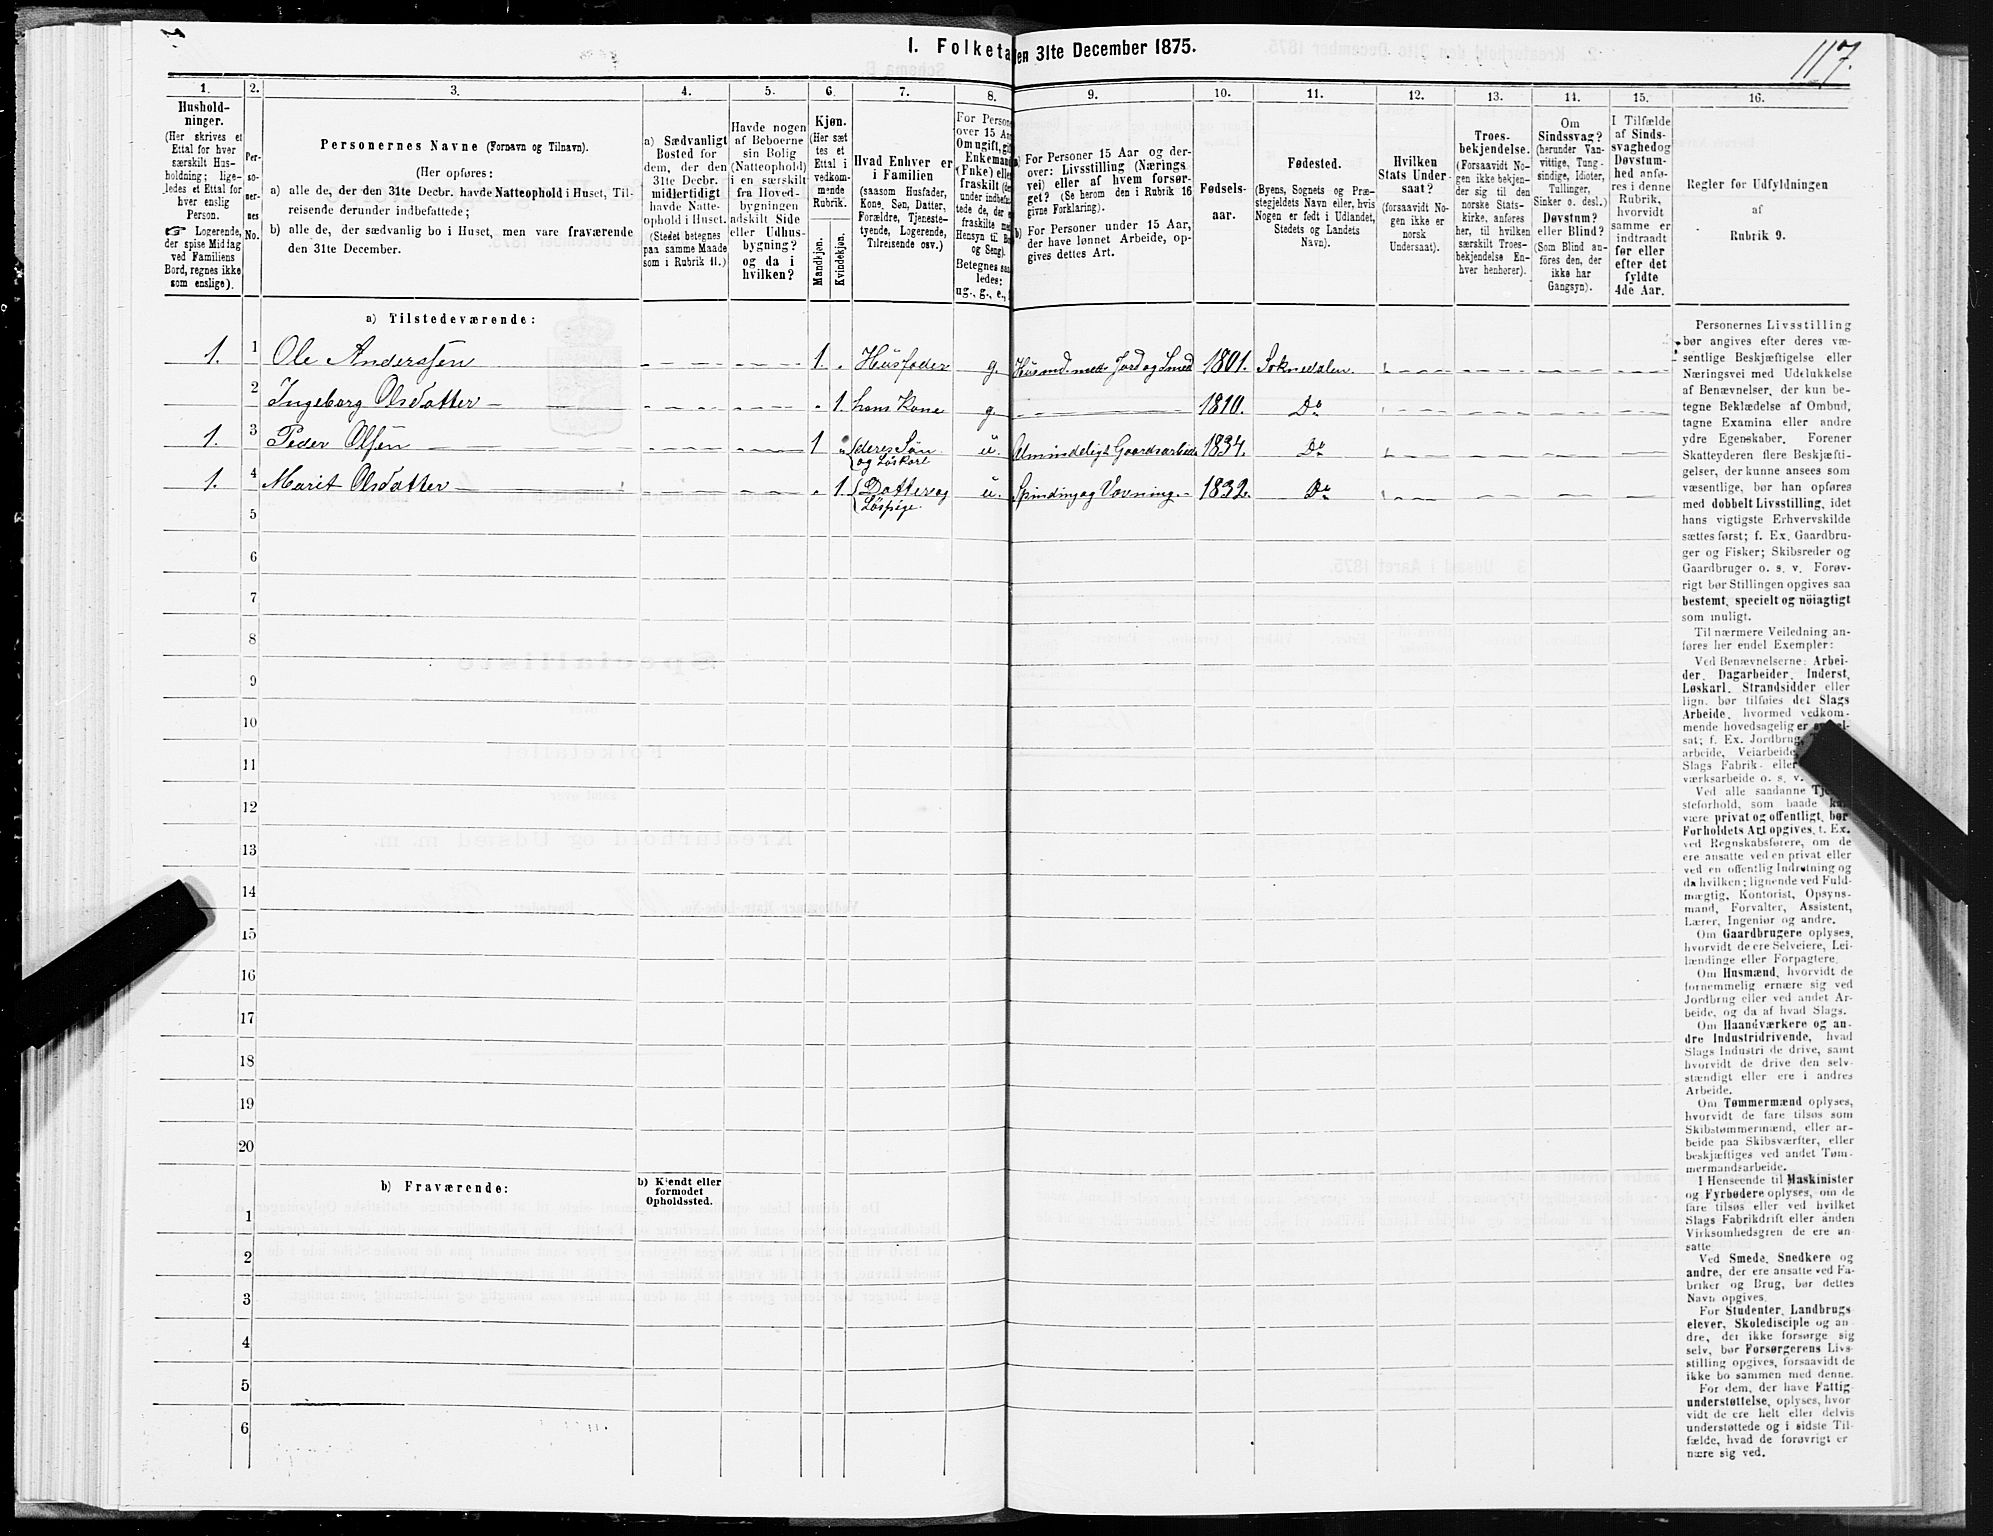 I. Folketa
en 31te December 1875.
117.
1. 2. 3. 4. 5. 6. 7. 8. 9. 10. 11. 12. 13. 14. 15. 16.
Hushold-
ninger.
(Her skrives et
Ettal for hver
særskilt Hus-
holdning; lige-
ledes et Ettal for
hver enslig
Person.
☞ Logerende,
der spise Middag
ved Familiens
Bord, regnes ikke
som enslige).
Per-
so-
ner-
nes
No.
Personernes Navne (Fornavn og Tilnavn).
(Her opføres:
a) alle de, der den 31te Decbr. havde Natteophold i Huset, Til-
reisende derunder indbefattede;
b) alle de, der sædvanlig bo i Huset, men vare fraværende
den 31te December.
a) Sædvanligt
Bosted for
dem, der den
31te Decbr.
midlertidigt
havde Natte-
ophold i Huset.
(Stedet betegnes
paa samme Maade
som i Rubrik 11.)
Havde nogen
af Beboerne
sin Bolig
(Natteophold)
i en særskilt
fra Hoved-
bygningen
adskilt Side
eller Udhus-
bygning?
og da i
hvilken?
Kjøn.
(Her sæt
tes et
Ettal i
vedkom-
mende
Rubrik.
Mandkjøn.
Kvindekjøn.
Hvad Enhver er
i Familien
(saasom Husfader,
Kone, Søn, Datter,
Forældre, Tjeneste-
tyende, Logerende,
Tilreisende osv.)
For Persone
over 15 Aa
Om ugift, gif
Enkemand
(Enke) elle
fraskilt (de
under indbefat
tede de, der e
fraskilte me
Hensyn til Bo
og Seng).
Betegnes saa
ledes:
ug., g., e.,
a) For Personer 15 Aar og der-
over: Livsstilling (Nærings
vei) eller af hvem forsør-
get? (Se herom den i Rubrik 16
givne Forklaring).
b) For Personer under 15 Aar,
der have lønnet Arbeide, op-
gives dettes Art.
Fødsels-
aar.
Fødested.
(Byens, Sognets og Præ-
stegjeldets Navn eller, hvis
Nogen er født i Udlandet,
Stedets og Landets
Navn).
Hvilken
Stats Under-
saat?
(forsaavidt No-
gen ikke er
norsk
Undersaat).
Troes-
bekjendelse.
(Forsaavidt No-
gen ikke bekjen-
der sig til den
norske Stats-
kirke, anføres
her, til hvilken
særskilt Troes-
bekjendelse En-
hver henhører).
Om
Sindssvag?
(herunder Van-
vittige, Tung-
sindige, Idioter,
Tullinger,
Sinker o. desl.)
Døvstum?
eller Blind?
(Som Blind an-
føres den, der
ikke har
Gangsyn).
I Tilfælde
af Sinds-
svaghed og
Døvstum-
hed anfø-
res i denne
Rubrik,
hvorvidt
samme er
indtraadt
før eller
efter det
fyldte
4de Aar.
Regler for Udfyldningen
af
Rubrik 9.
a) Tilstedeværende:
1. 1 Ole Anderssen 1. Husfader g. Husmd. med Jord og Smed 1801. Soknedalen
2 Ingeborg Olsdatter 1. hans Kone g. 1810. Do
1. 3 Peder Olsen 1 deres Søn og Løskarl u. Almindeligt Gaardsarbeide 1834. Do
1. 4 Marit Olsdatter 1. Datter og Løspige. u. Spinding og Vævning. 1832. Do
5
6
7
8
9
10
11
12
13
14
15
16
17
18
19
20
b) Fraværende:
b) Kjendt eller
formodet
Opholdssted.
1
2
3
4
5
6
Personernes Livsstilling
bør angives efter deres væ-
sentlige Beskjæftigelse eller
Næringsvei med Udelukkelse
af Benævnelser, der kun be-
tegne Beklædelse af Ombud,
tagne Examina eller andre
ydre Egenskaber. Forener
Skatteyderen flere Beskjæfti-
gelser, der kunne ansees som
væsentlige, bør han opføres
med dobbelt Livsstilling, idet
hans vigtigste Erhvervskilde
sættes først; f. Ex. Gaardbru-
ger og Fisker; Skibsreder og
Gaardbruger o. s. v. Forøv-
rigt bør Stillingen opgives saa
bestemt, specielt og nøiagtigt
som muligt.
Til nærmere Veiledning an-
føres her endel Exempler:
Ved Benævnelserne: Arbei-
der, Dagarbeider, Inderst,
Løskarl, Strandsidder eller
lign. bør tilføies det Slags
Arbeide, hvormed vedkom-
mende hovedsagelig er
sat; f. Ex. Jordbrug,
arbeide, Veiarbeide,
Slags Fabrik- eller
værksarbeide o. s. v.
Ved alle saadanne
steforhold, som baade
være privat og offentligt, bør
Forholdets Art opgives, t. Ex.
ved Regnskabsførere, om de
ere ansatte ved en privat eller
ved en offentlig Indretning og
da hvilken; lignende ved Fuld-
mægtig, Kontorist, Opsyns-
mand, Forvalter, Assistent,
Lærer, Ingeniør og andre.
Om Gaardbrugere oplyses,
hvorvidt de ere Selveiere, Lei-
lændinge eller Forpagtere.
Om Husmænd, hvorvidt de
fornemmelig ernære sig ved
Jordbrug eller ved andet Ar-
beide, og da af hvad Slags.
Om Haandværkere og an-
dre Industridrivende, hvad
Slags Industri de drive, samt
hvorvidt de drive den selv-
stændigt eller ere i andres
Arbeide.
Om Tømmermænd oplyses,
hvorvidt de fare tilsøs som
Skibstømmermænd, eller ar-
beide paa Skibsværfter, eller
beskjæftiges ved andet Tøm-
mermandsarbeide.
I Henseende til Maskinister
og Fyrbødere oplyses, om de
fare tilsøs eller ved hvilket
Slags Fabrikdrift eller anden
Virksomhedsgren de ere an-
satte.
Ved Smede, Snedkere og
andre, der ere ansatte ved Fa-
briker og Brug, bør dettes
Navn opgives.
For Studenter, Landbrugs
elever, Skoledisciple og an-
dre, der ikke forsørge sig
selv, bør Forsørgerens Livs-
stilling opgives, forsaavidt de
ikke bo sammen med denne.
For dem, der have Fattig-
understøttelse, oplyses, hvor
vidt de ere helt eller delvis
understøttede og i sidste Til-
fælde, hvad de forøvrigt er
nære sig ved.